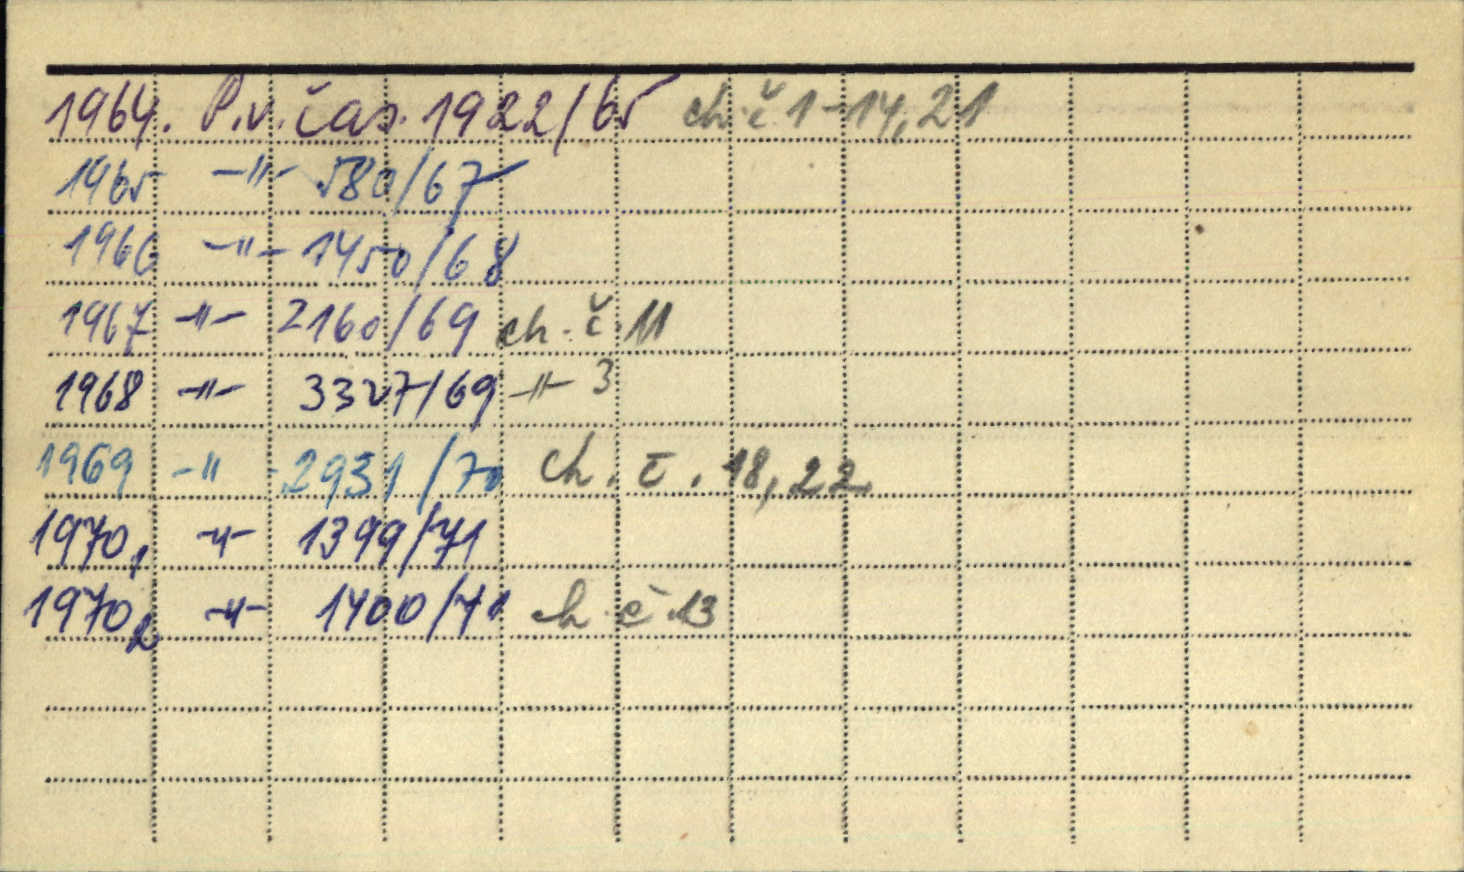 1964. P.v.čas. 1922/65 ch.č 1-14,21
1965 -"- 580/67
1966 -"- 1450/68
1967 -"- 2160/69 ch.č.11
1968 -"- 3327/69 -"- 3
1969 -"- 2931/70 ch.č.18,22
1970,1 -"- 1399/71
1970,2 -"- 1400/71 ch.č.13